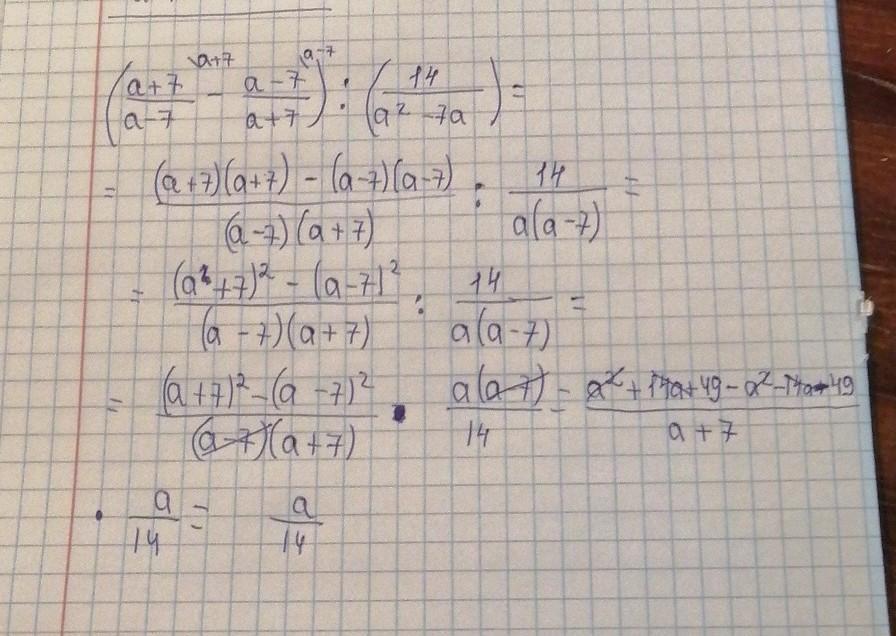 ((a+7)/(a-7) \a+7 - (a-7)/(a+7) \a-7) : (14/(a² - 7a)) =
= ((a+7)(a+7) - (a-7)(a-7))/((a-7)(a+7)) : 14/(a(a-7)) =
= ((a²+7)² - (a-7)²)/((a-7)(a+7)) : 14/(a(a-7)) =
= ((a+7)² - (a-7)²)/((a-7)(a+7)) · a(a-7)/14 = (a² + 14a + 49 - a² - 14a - 49)/(a+7)
· a/14 = a/14